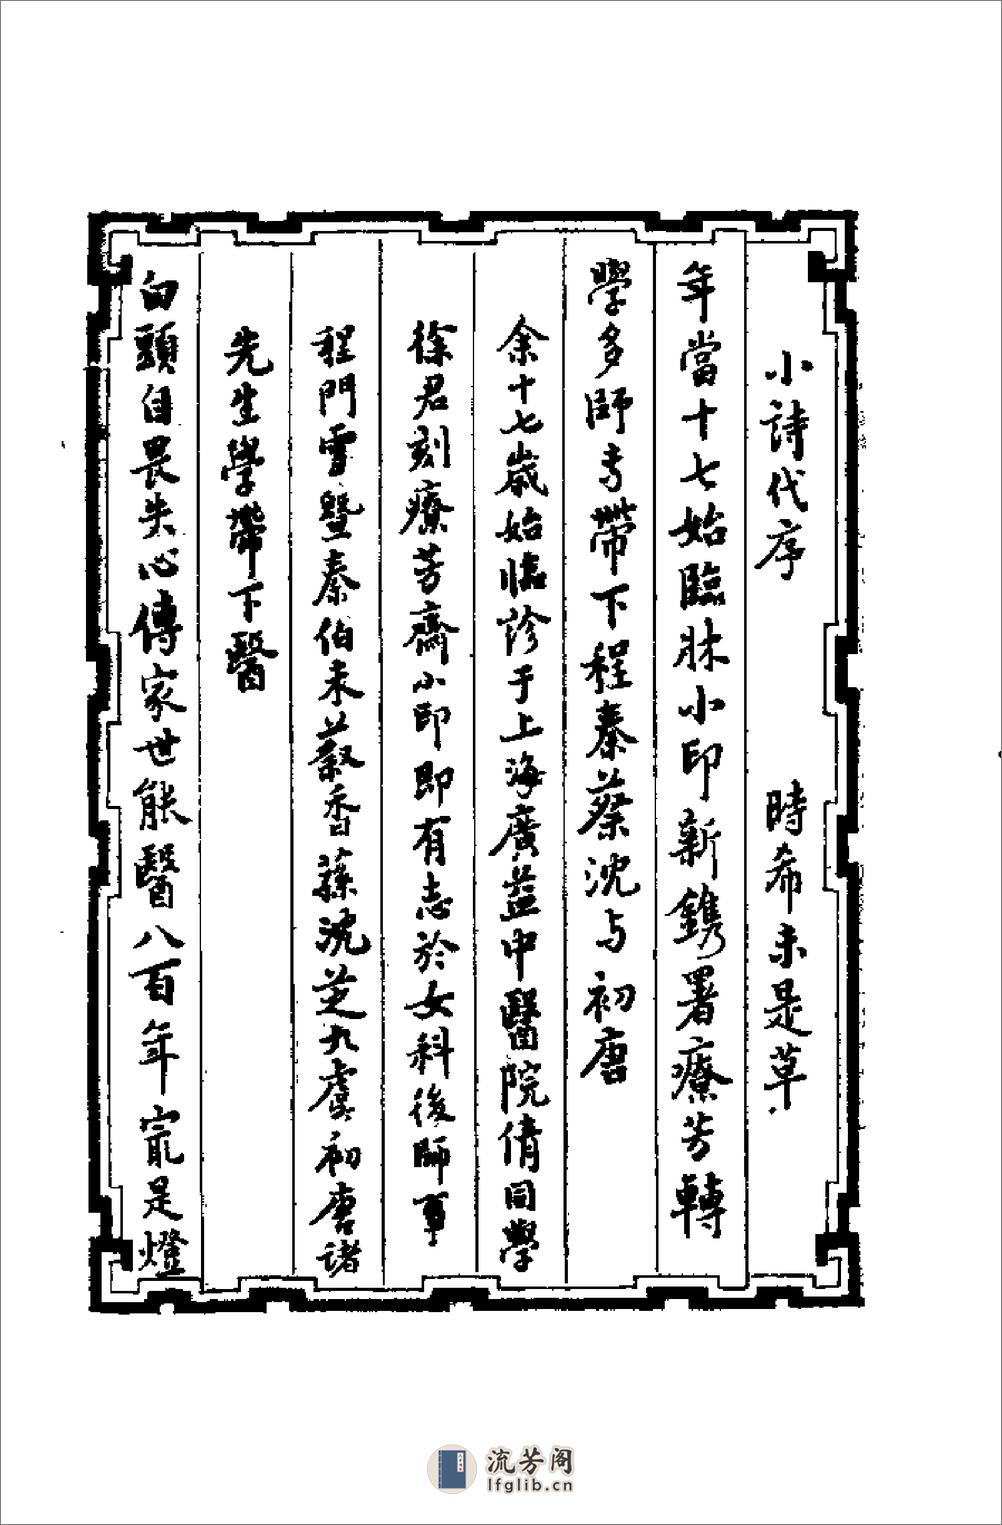 小詩代序 時希未是草
年當十七始臨牀小印新鐫署療芳轉
學多師專帶下程秦蔡沈与初唐
余十七歲始臨診于上海廣益中醫院倩同學
徐君刻療芳齋小印即有志於女科後師事
程門雪暨秦伯未蔡香蓀沈芝九虞初唐諸
先生學帶下醫
白頭自畏失心傳家世能醫八百年寂是燈
流芳阁
lfglib.cn